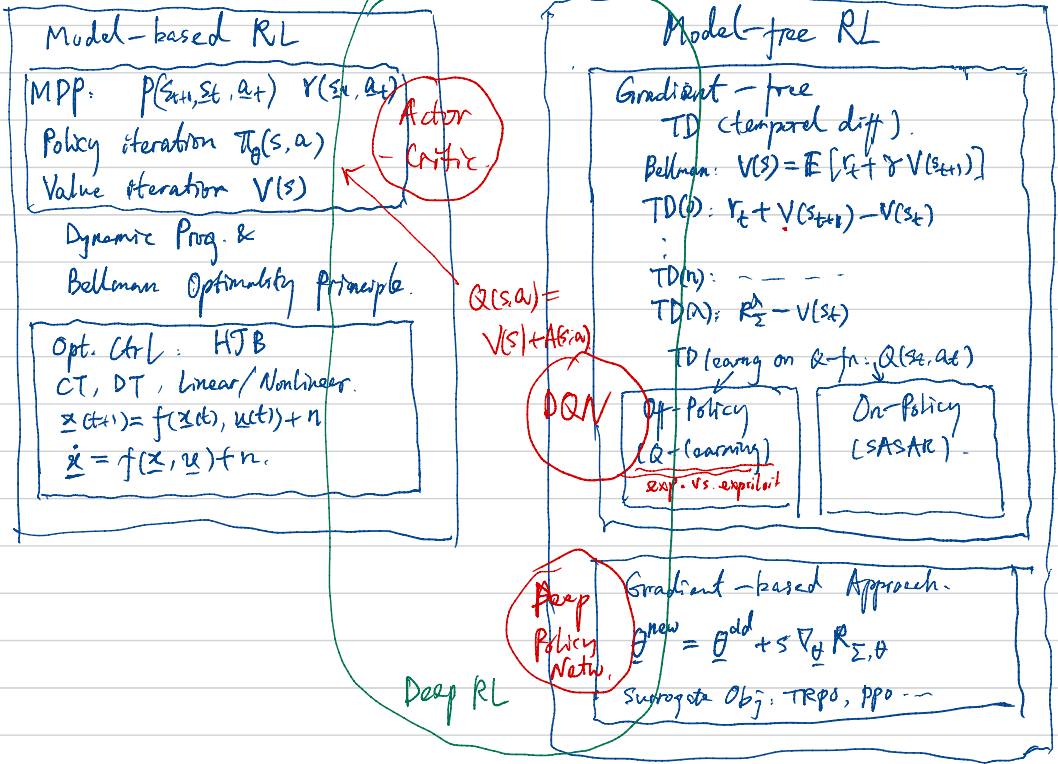 Model-based RL
MDP: P(s_{t+1}, s_t, a_t) r(s_t, a_t)
Policy iteration π_θ(s,a)
Value iteration V(s)
Dynamic Prog. &
Bellman Optimality Principle.
Opt. Ctrl: HJB
CT, DT, Linear/Nonlinear.
x(t+1) = f(x(t), u(t)) + n
ẋ = f(x, u) + n.
Actor
- Critic.
Q(s,a) =
V(s)+A(s,a)
DQN
Deep
Policy
Netw.
Deep RL
Model-free RL
Gradient-free
TD (temporal diff).
Bellman: V(s) = E[r_t + γ V(s_{t+1})]
TD(0): r_t + V(s_{t+1}) - V(s_t)
TD(n): - - - -
TD(λ): R_Σ^λ - V(s_t)
TD learng on Q-fn: Q(s_t, a_t)
Off-Policy
(Q-learning)
exp. vs. exprloit
On-Policy
(SASAR).
Gradient-based Approach.
θ^{new} = θ^{old} + s ∇_θ R_{Σ,θ}
Surrogate Obj: TRPO, PPO ---